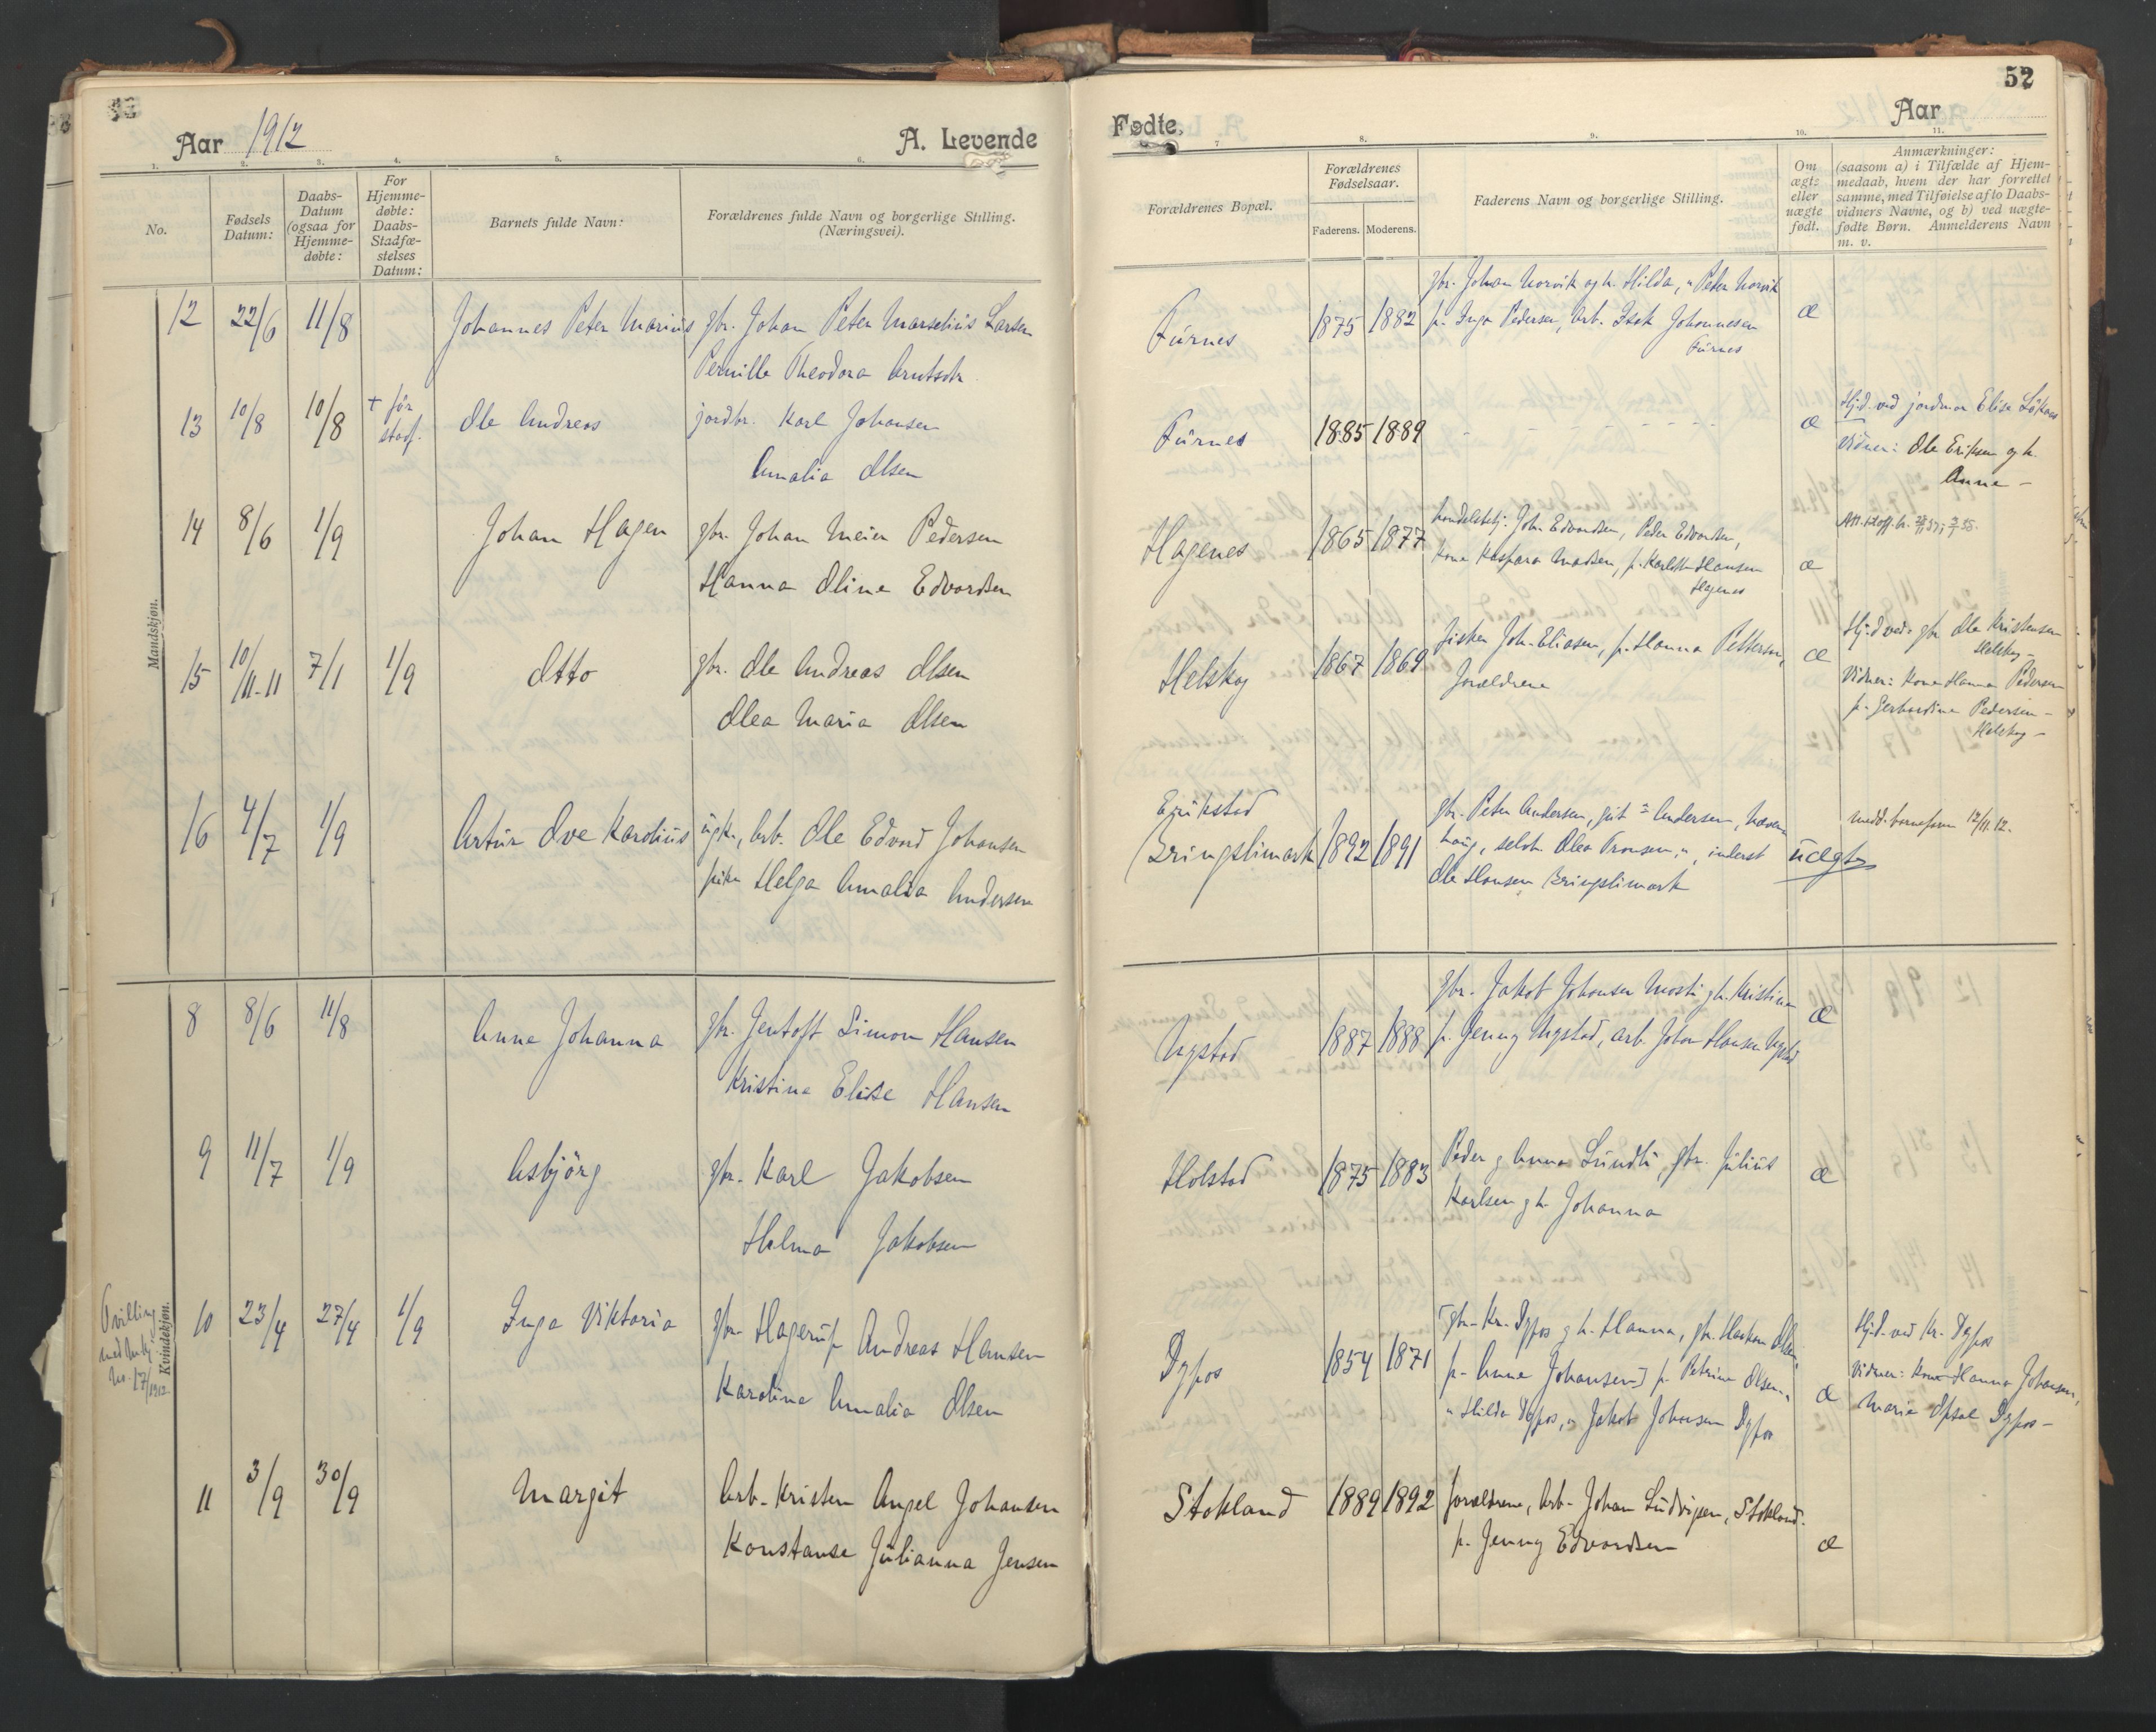 Aar 1912
A. Levende
1. 2. 3. 4. 5. 6.
No.
Fødsels Datum:
Daabs-Datum (ogsaa for Hjemmedøbte:
For Hjemmedøbte: Daabs-Stadfæstelses Datum:
Barnets fulde Navn:
Forældrenes fulde Navn og borgerlige Stilling. (Næringsvei).
Mandskjøn.
12 22/6 11/8 Johannes Peter Marius gbr. Johan Peter Marselius Larsen
Pernille Theodora Arntsdtr
13 10/8 10/8 + før stadf. Ole Andreas jordbr. Karl Johansen
Amalia Olsen
14 8/6 1/9 Johan Hagen gbr. Johan Meier Pedersen
Hanna Oline Edvardsen
15 10/11-11 7/1 1/9 Otto gbr. Ole Andreas Olsen
Olea Maria Olsen
16 4/7 1/9 Artur Ove Karolius ugk., arb. Ole Edvard Johansen
pike Helga Amalia Andersen
Kvindekjøn.
8 8/6 11/8 Anne Johanna gbr. Jentoft Simon Hansen
Kristine Elise Hansen
9 11/7 1/9 Asbjörg gbr. Karl Jakobsen
Helma Jakobsen
Tvilling
med
No. 17/1912
10 23/4 27/4 1/9 Inga Viktoria gbr. Hagerup Andreas Hansen
Karoline Amalia Olsen
11 3/9 30/9 Margit Arb. Kristen Angel Johansen
Konstanse Julianna Jensen
52
Fødte,
Aar
7 8. 9. 10. 11.
Forældrenes Bopæl.
Forældrenes Fødselsaar.
Faderens. Moderens.
Faderens Navn og borgerlige Stilling.
Om ægte eller uægte født.
Anmærkninger:
(saasom a) i Tilfælde af Hjemmedaab, hvem der har forrettet samme, med Tilføielse af to Daabsvidners Navne, og b) ved uægtefødte Børn. Anmelderens Navn m. v.
Furnes 1875 1882 gbr. Johan Norvik og h. Hilda, " Peter Norvik
p. Inga Pedersen, Arb. Isak Johannesen
Furnes
æ
Furnes 1885 1889 - - - - - - æ
Hjd. ved jordmor Elise
Vidner: Ole Eriksen og h.
Anne -
Hagenes 1865 1877 handelsbetj. John Edvardsen, Peder Edvardsen,
kone Kaspara Madsen, p. Hansen
Hagenes
æ
Helskog 1867 1869 fisker Joh. Eliasen, p. Hanna Pettersen,
forældrene
æ
Hjd. ved gbr. Ole Kristensen
Helskog -
Vidner: Kone Hanna Pedersen
p. Gerhardine Pedersen -
Helskog -
Erikstad
(Kringslimark 1892 1891 gbr. Peter Andersen, gut " Andersen,
haug, selvb. Olea Tronsen, ", inderst
Ole Hansen Kringslimark
uægte
medd. barnefaren 12/11.12.
Nygstad 1887 1888 gbr. Jakob Johansen Mosti g h. Kristine
p. Jenny Nygstad, arb. Johan Hansen Nygstad
æ
Holstad 1875 1883 Peder g Anna Lundli, gbr. Julius
Karlsen g h. Johanna
æ
Dypos 1854 1871 [gbr. Kr. Dypos g h. Hanna, gbr. Haakon Olsen,
p. Anne Johansen] p. Petrine Olsen "
" Hilda Dypos, " Jakob Johansen Dypos
æ
Hjd. ved Kr. Dypos
Vidner: kone Hanna Johansen,
Maria Opsal Dypos -
Stokland 1889 1892 forældrene, Arb. Johan Ludvigsen, Stokland.
p. Jenny Edvardsen
æ